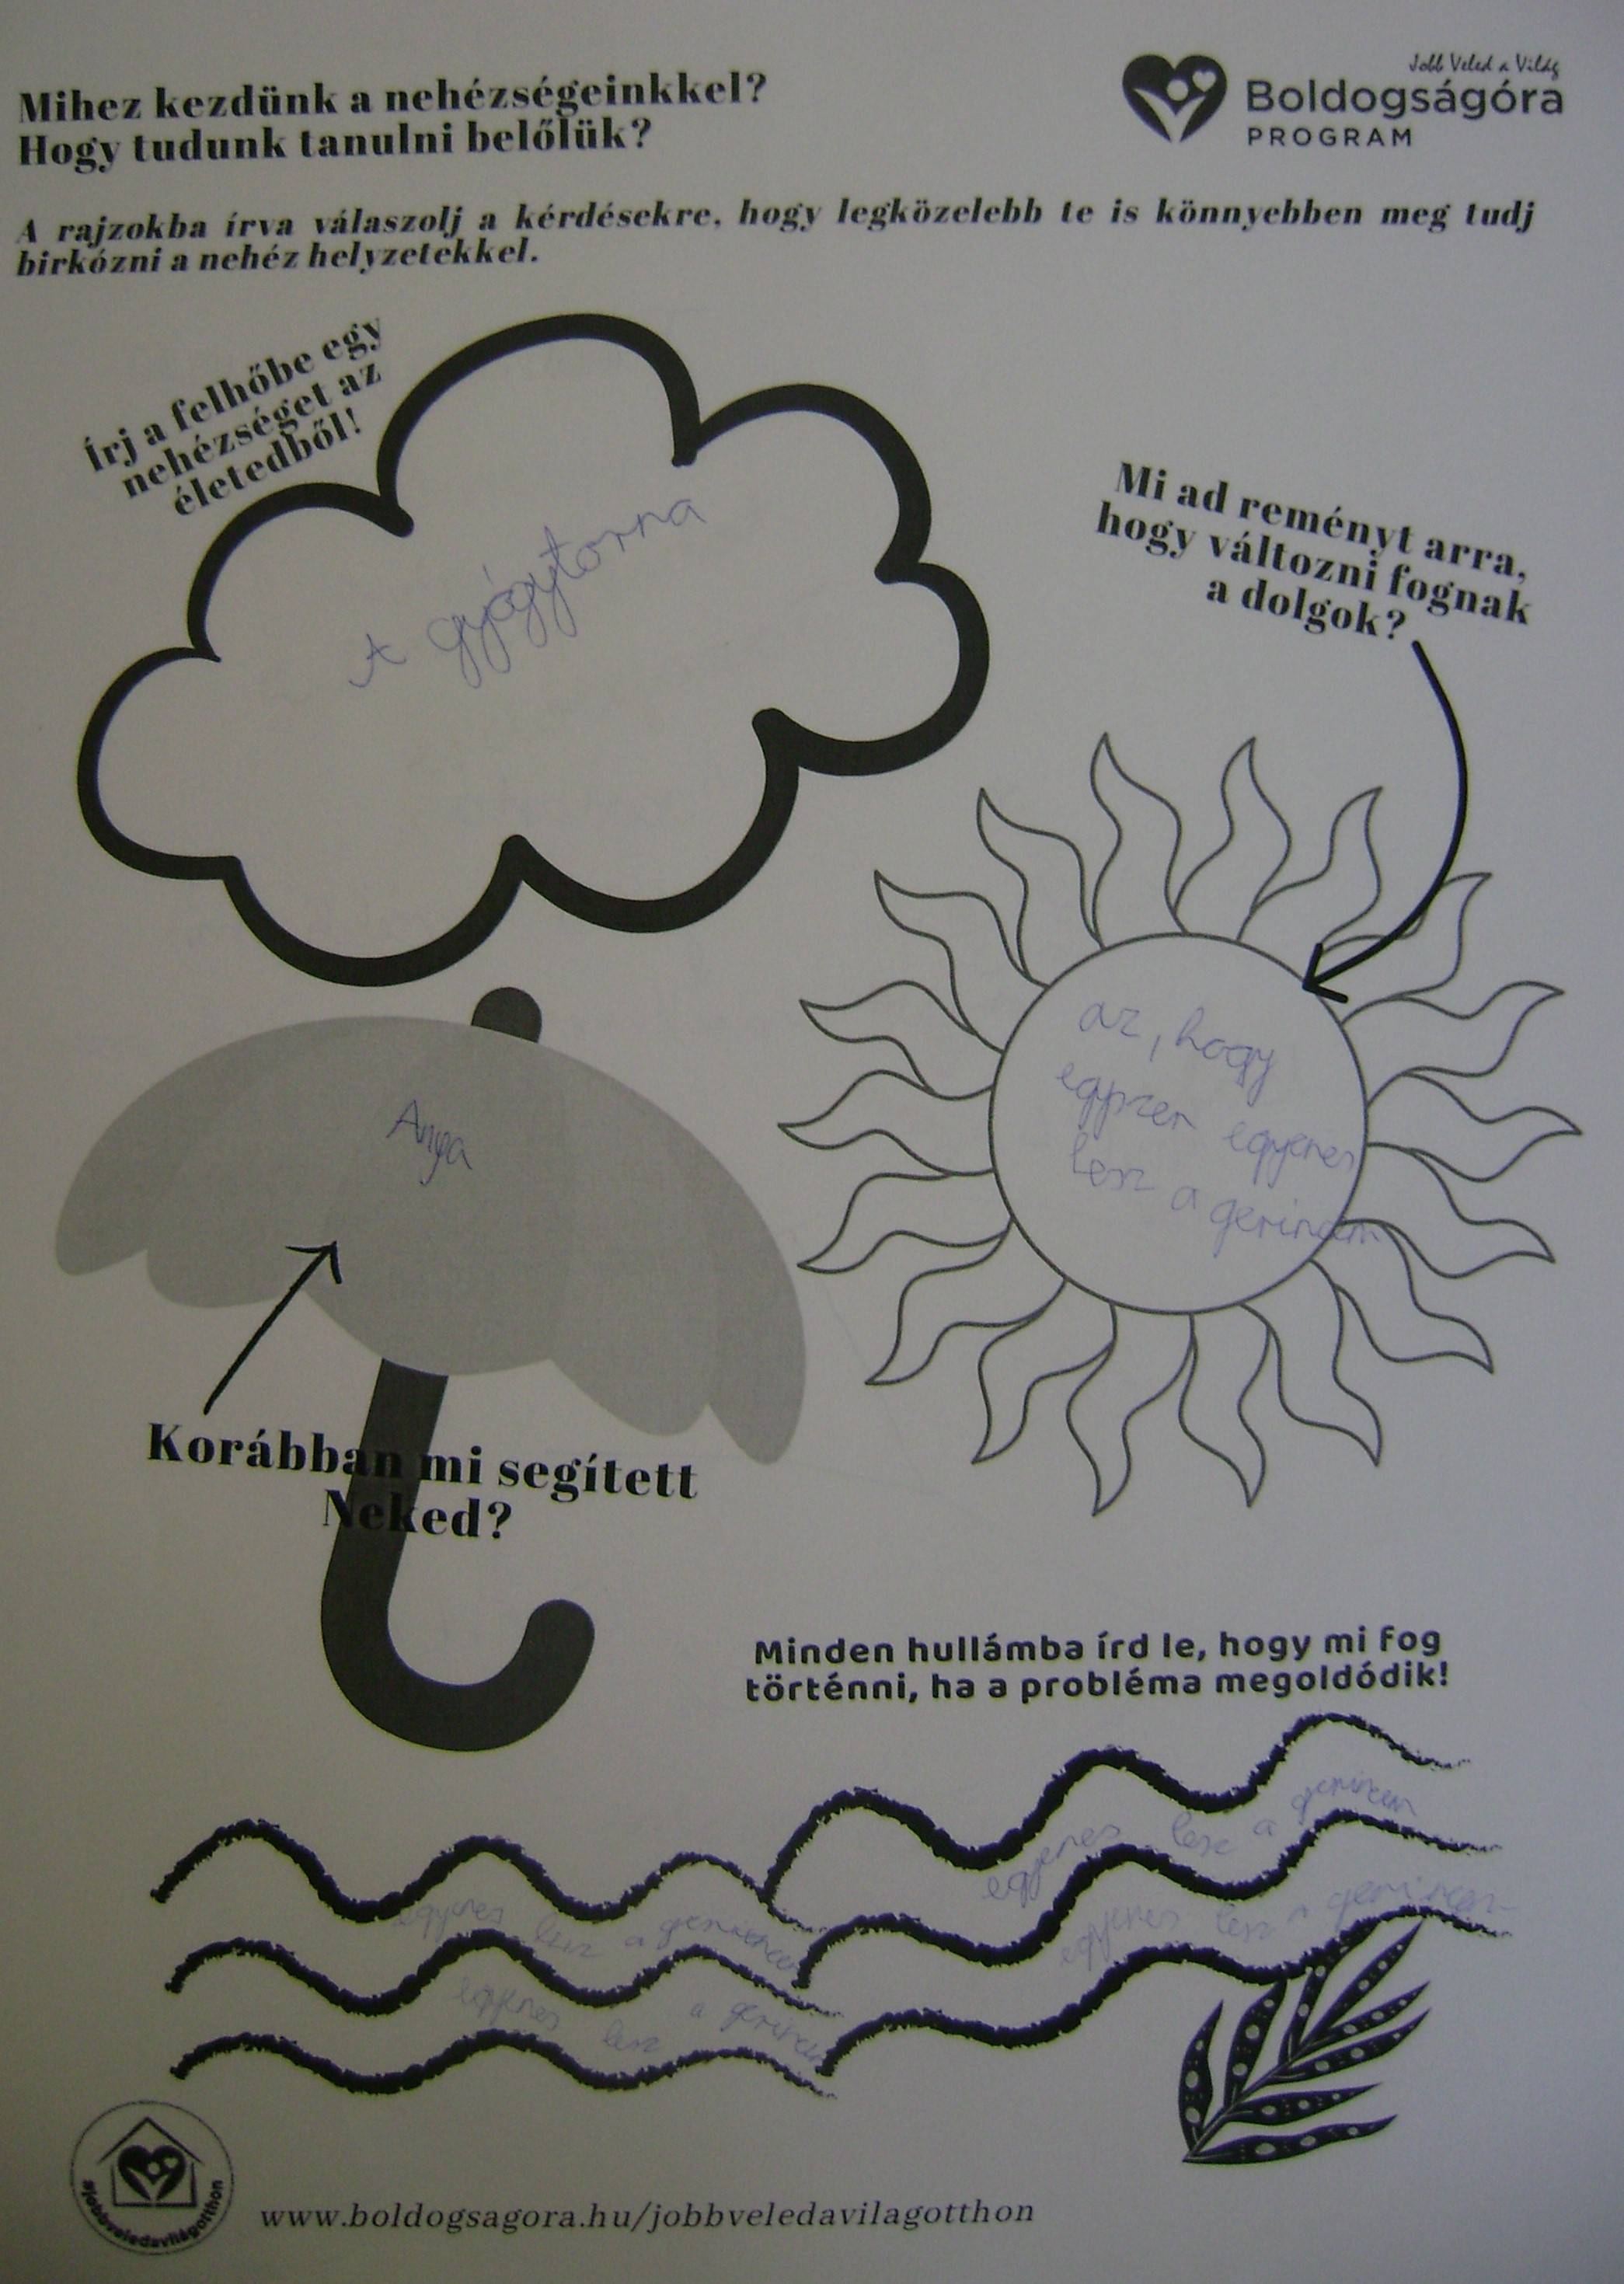 Mihez kezdünk a nehézségeinkkel?
Hogy tudunk tanulni belőlük?
Jobb Veled a Világ
Boldogságóra
PROGRAM
A rajzokba írva válaszolj a kérdésekre, hogy legközelebb te is könnyebben meg tudj
birkózni a nehéz helyzetekkel.
Írj a felhőbe egy
nehézséget az
életedből!
A gyógytorna
Mi ad reményt arra,
hogy változni fognak
a dolgok?
az, hogy
egyszer egyenes
lesz a gerincem
Anya
Korábban mi segített
Neked?
Minden hullámba írd le, hogy mi fog
történni, ha a probléma megoldódik!
egyenes lesz a gerincem
egyenes lesz a gerincem
egyenes lesz a gerincem
egyenes lesz a gerincem
#jobbveledavilágotthon
www.boldogsagora.hu/jobbveledavilagotthon